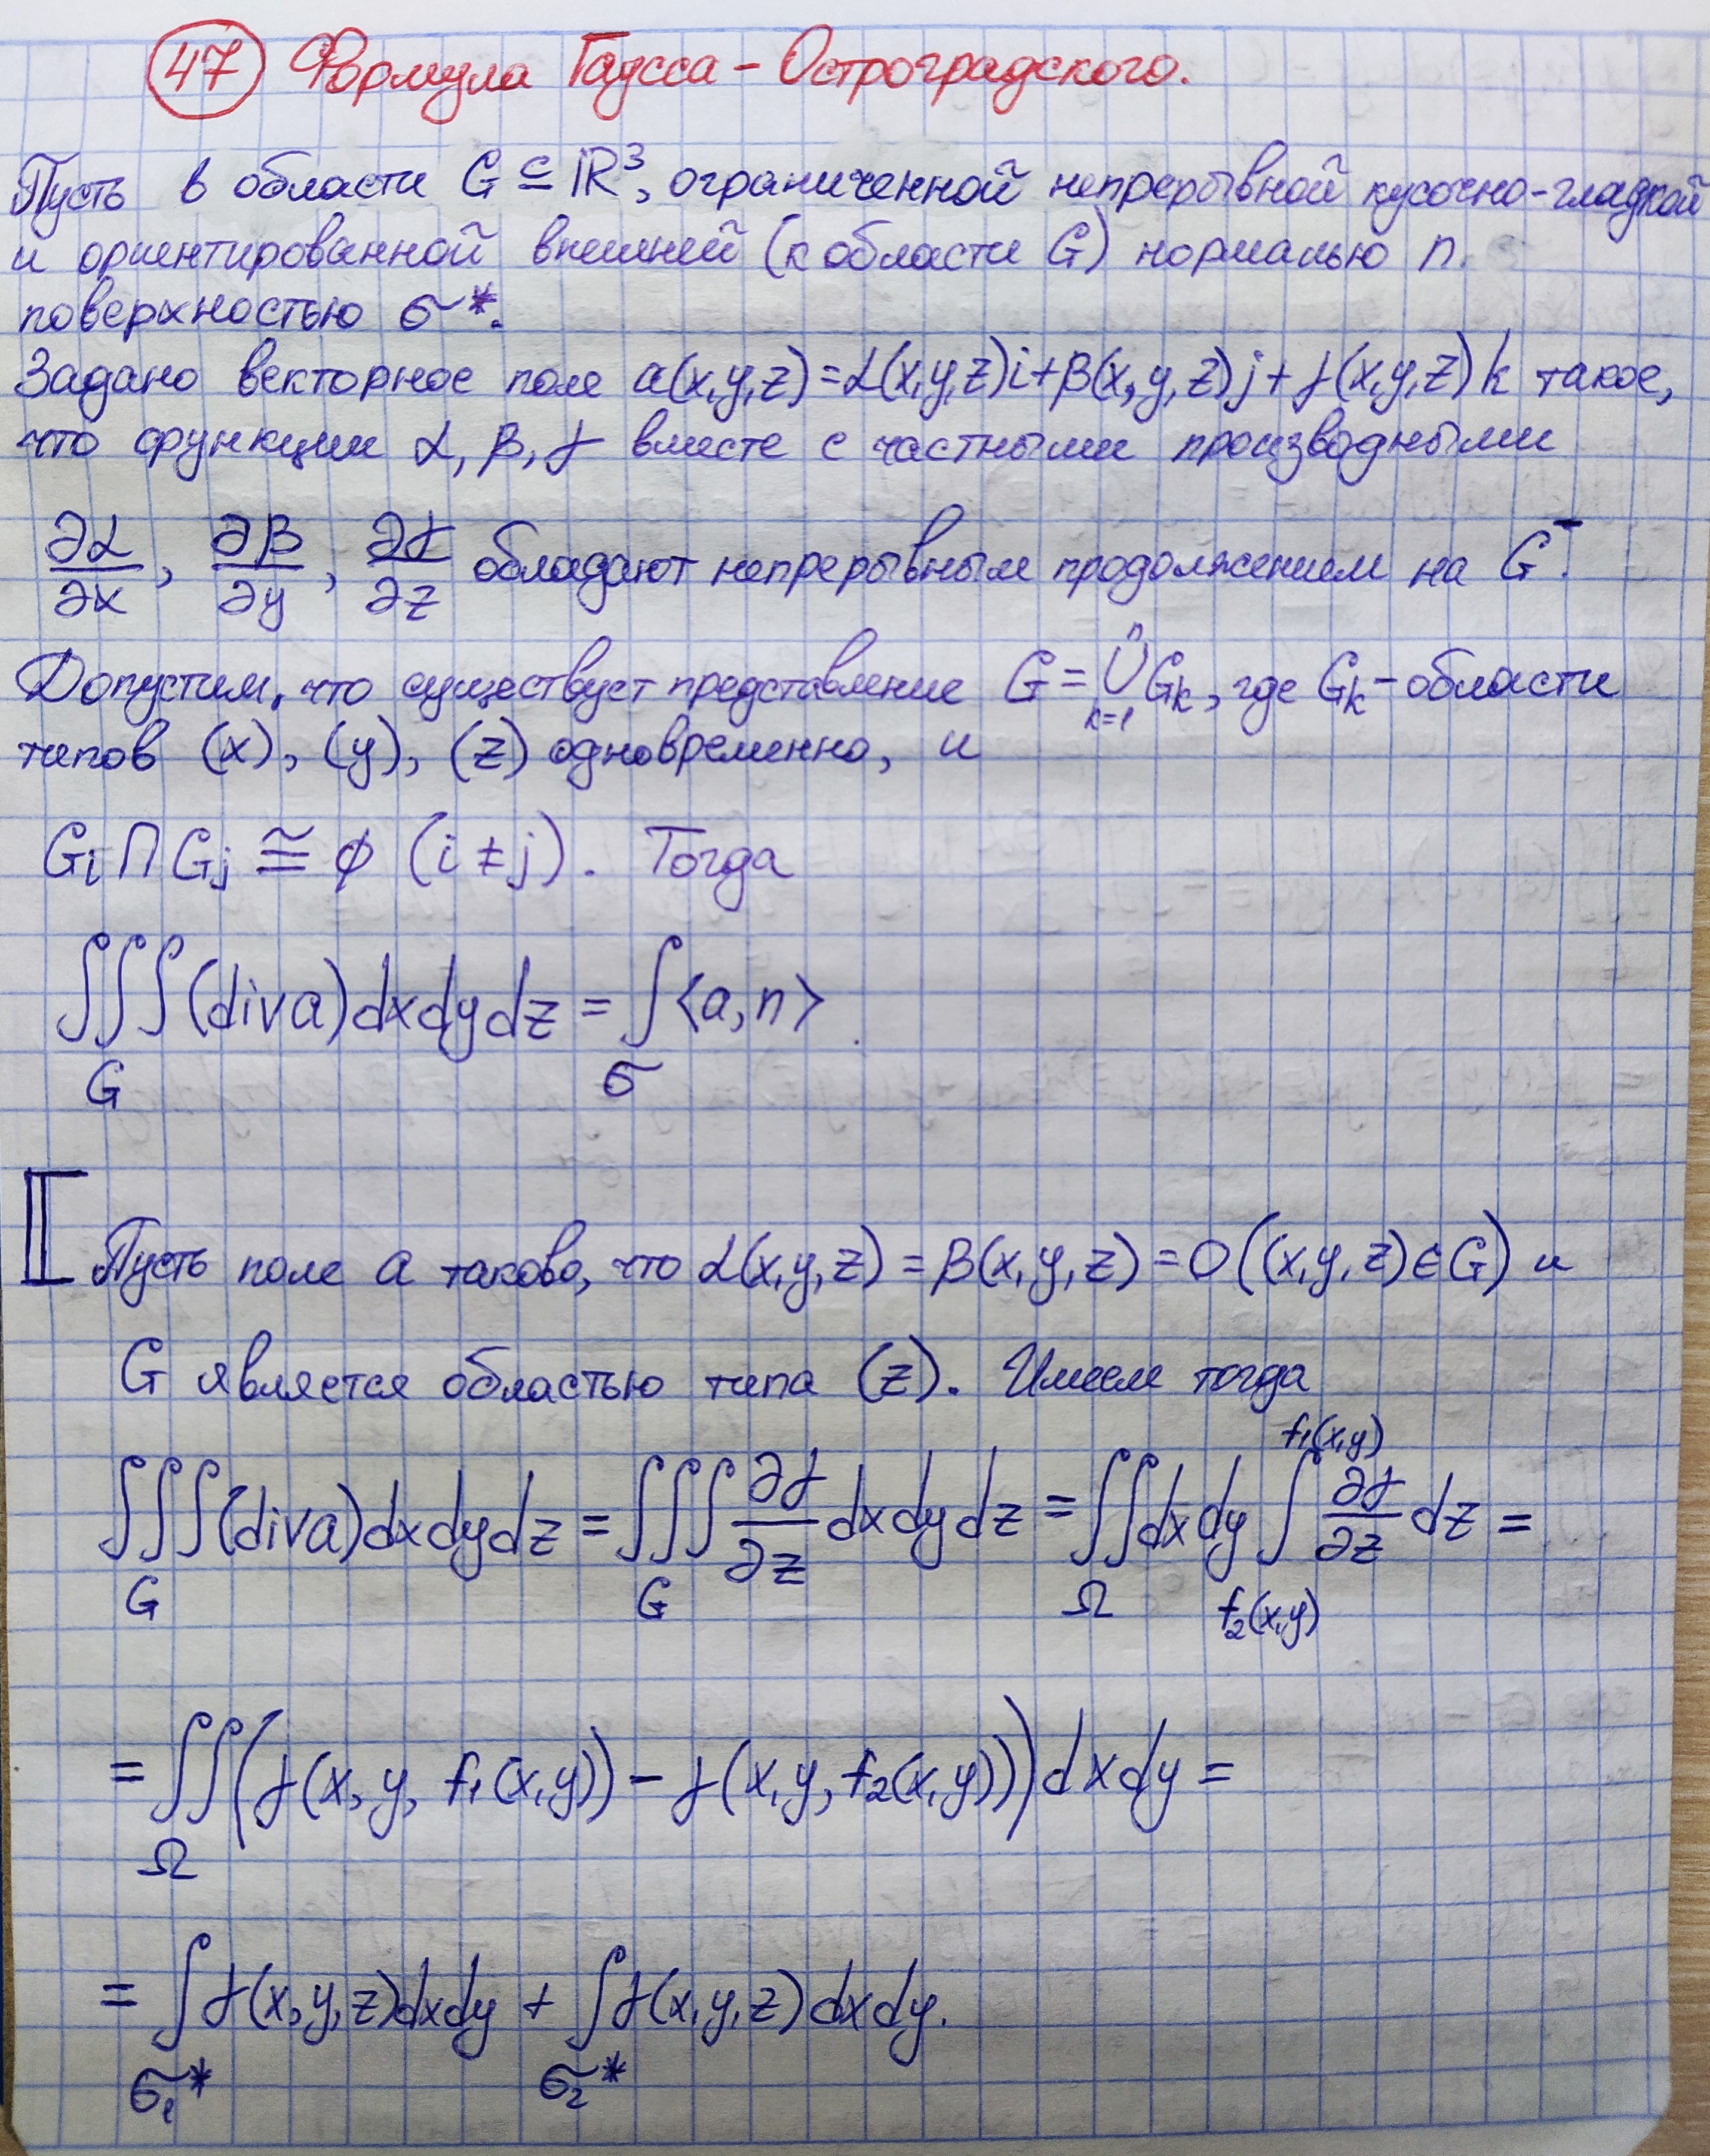 47 Формула Гаусса - Остроградского.
Пусть в области G ⊆ ℝ³, ограниченной непрерывной кусочно-гладкой
и ориентированной внешней (к области G) нормалью n.
поверхностью σ*.
Задано векторное поле a(x,y,z)=α(x,y,z)i+β(x,y,z)j+γ(x,y,z)k такое,
что функции α, β, γ вместе с частными производными
∂α/∂x, ∂β/∂y, ∂γ/∂z обладают непрерывным продолжением на G̅.
Допустим, что существует представление G = ⋃ₖ₌₁ⁿ Gₖ, где Gₖ - области
типов (x), (y), (z) одновременно, и
Gᵢ ∩ Gⱼ ≅ ∅ (i ≠ j). Тогда
∭_G (div a)dxdydz = ∫_σ <a,n>
[ Пусть поле a таково, что α(x,y,z) = β(x,y,z) = 0 ((x,y,z)∈G) и
G является областью типа (z). Имеем тогда
∭_G (div a)dxdydz = ∭_G ∂γ/∂z dxdydz = ∬_Ω dxdy ∫_{f₂(x,y)}^{f₁(x,y)} ∂γ/∂z dz =
= ∬_Ω (γ(x, y, f₁(x,y)) - γ(x,y, f₂(x,y))) dxdy =
= ∫_{σ₁*} γ(x,y,z)dxdy + ∫_{σ₂*} γ(x,y,z)dxdy.